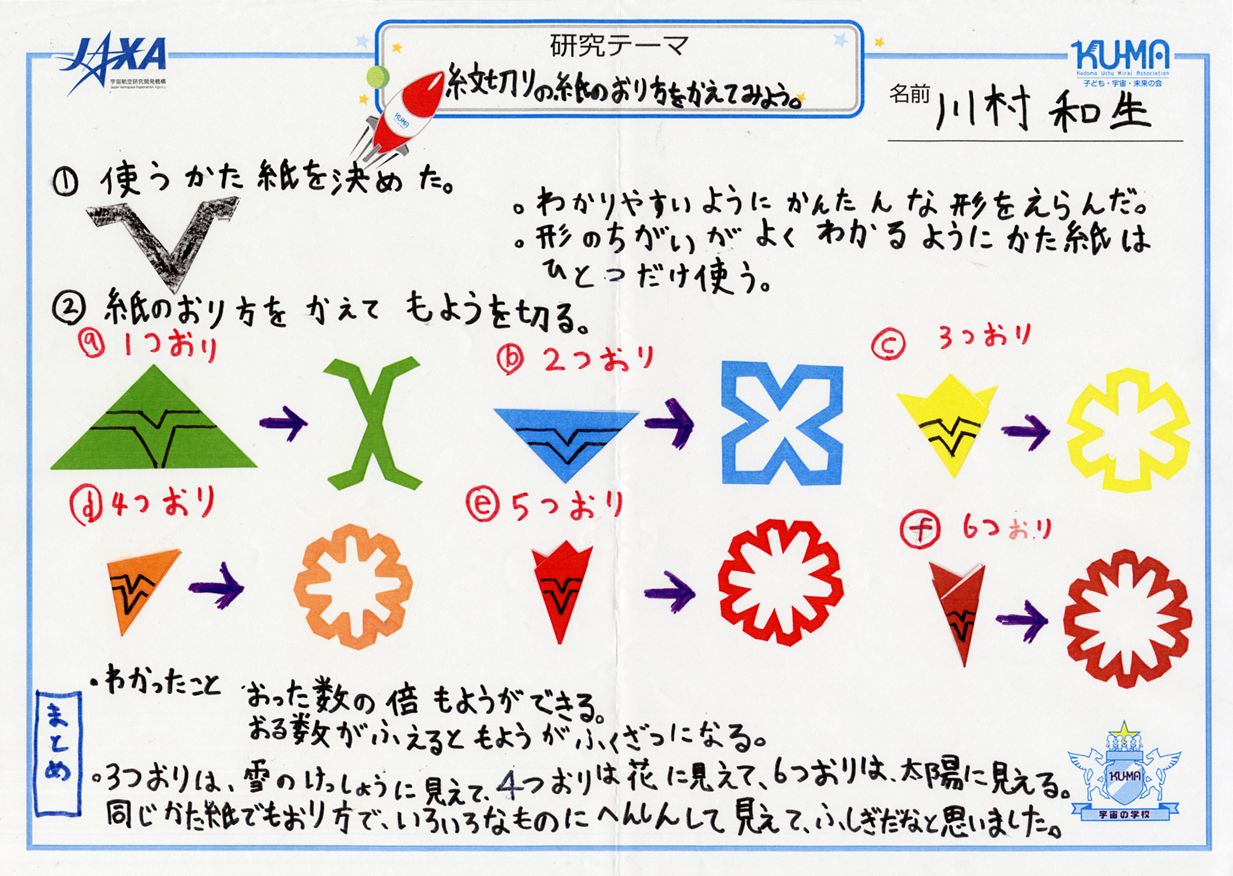 JAXA
宇宙航空研究開発機構
Japan Aerospace Exploration Agency
研究テーマ
紋切りの紙のおり方をかえてみよう。
KUMA
KU-MA
Kodomo Uchu Mirai Association
子ども・宇宙・未来の会
名前 川村 和生
① 使うかた紙を決めた。
。わかりやすいようにかんたんな形をえらんだ。
。形のちがいがよくわかるようにかた紙は
ひとつだけ使う。
② 紙のおり方をかえてもようを切る。
ⓐ 1つおり
ⓑ 2つおり
ⓒ 3つおり
ⓓ 4つおり
ⓔ 5つおり
ⓕ 6つおり
まとめ
・わかったこと
おった数の倍もようができる。
おる数がふえるともようがふくざつになる。
。3つおりは、雪のけっしょうに見えて、4つおりは花に見えて、6つおりは、太陽に見える。
同じかた紙でもおり方で、いろいろなものにへんしんして見えて、ふしぎだなと思いました。
KU-MA
宇宙の学校